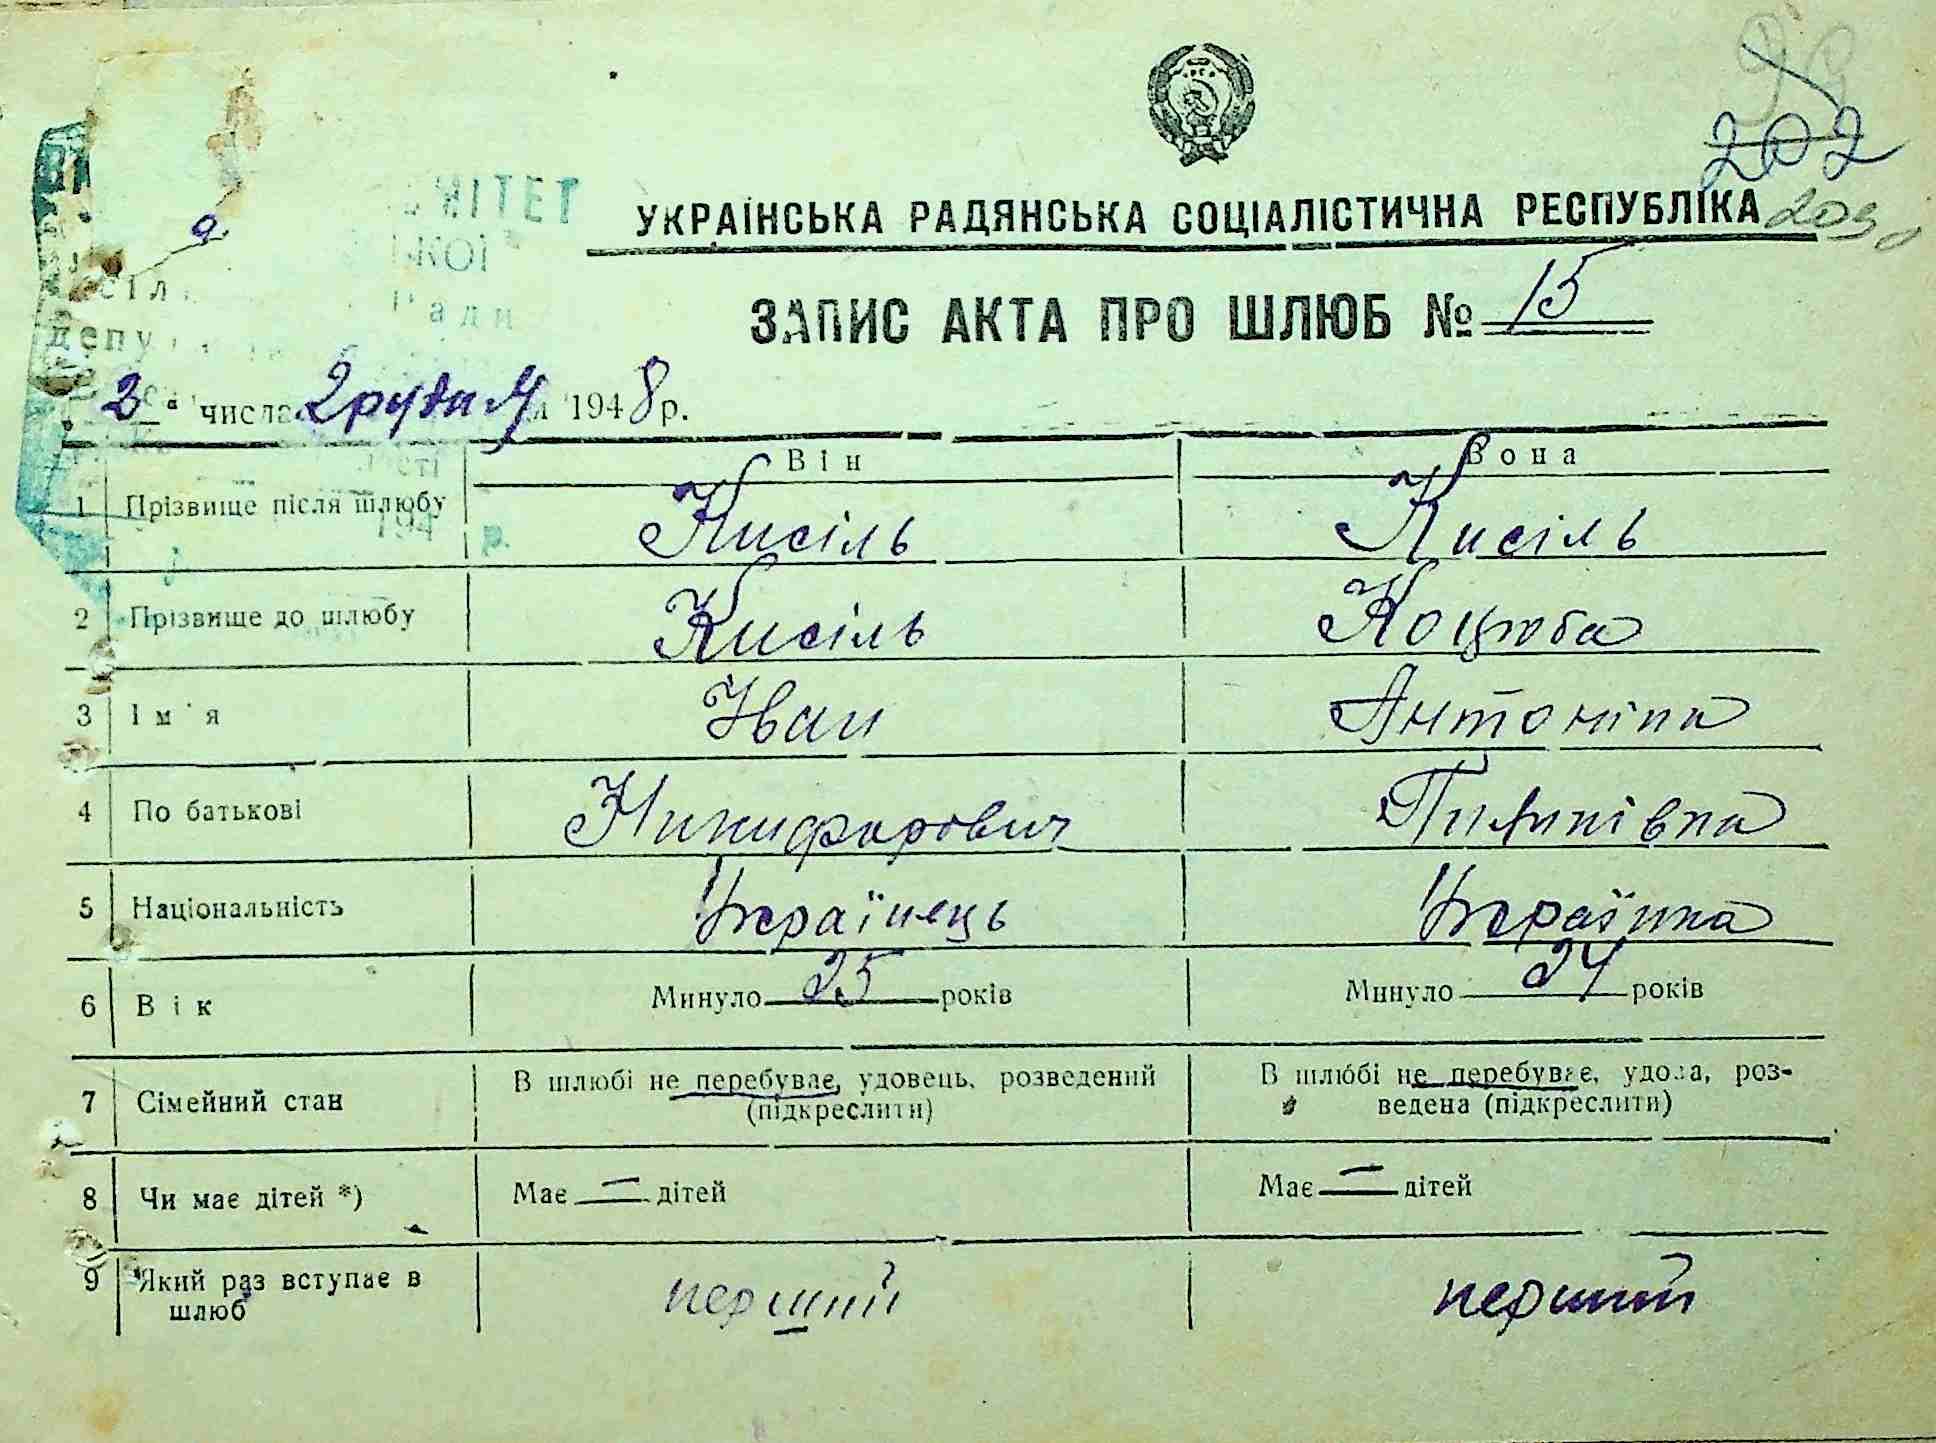 202
203
УКРАЇНСЬКА РАДЯНСЬКА СОЦІАЛІСТИЧНА РЕСПУБЛІКА
ЗАПИС АКТА ПРО ШЛЮБ № 15
3 " числа Грудня 1948 р.
Він Вона
1 Прізвище після шлюбу Кисіль Кисіль
2 Прізвище до шлюбу Кисіль Коцюба
3 Ім'я Іван Антоніна
4 По батькові Никифорович Пилипівна
5 Національність Українець Українка
6 Вік Минуло 25 років Минуло 24 років
7 Сімейний стан В шлюбі не перебуває, удовець, розведений (підкреслити) В шлюбі не перебуває, удова, розведена (підкреслити)
8 Чи має дітей *) Має — дітей Має — дітей
9 Який раз вступає в шлюб перший перший